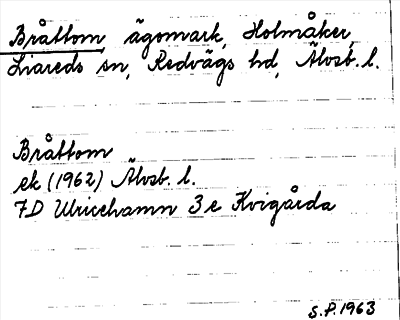 Bråttom, ägomark, Holmåker,
Liareds sn, Redvägs hd, Älvsb. l.
Bråttom
ek (1962) Älvsb. l.
7D Ulricehamn 3e Kvigårda
S.P. 1963